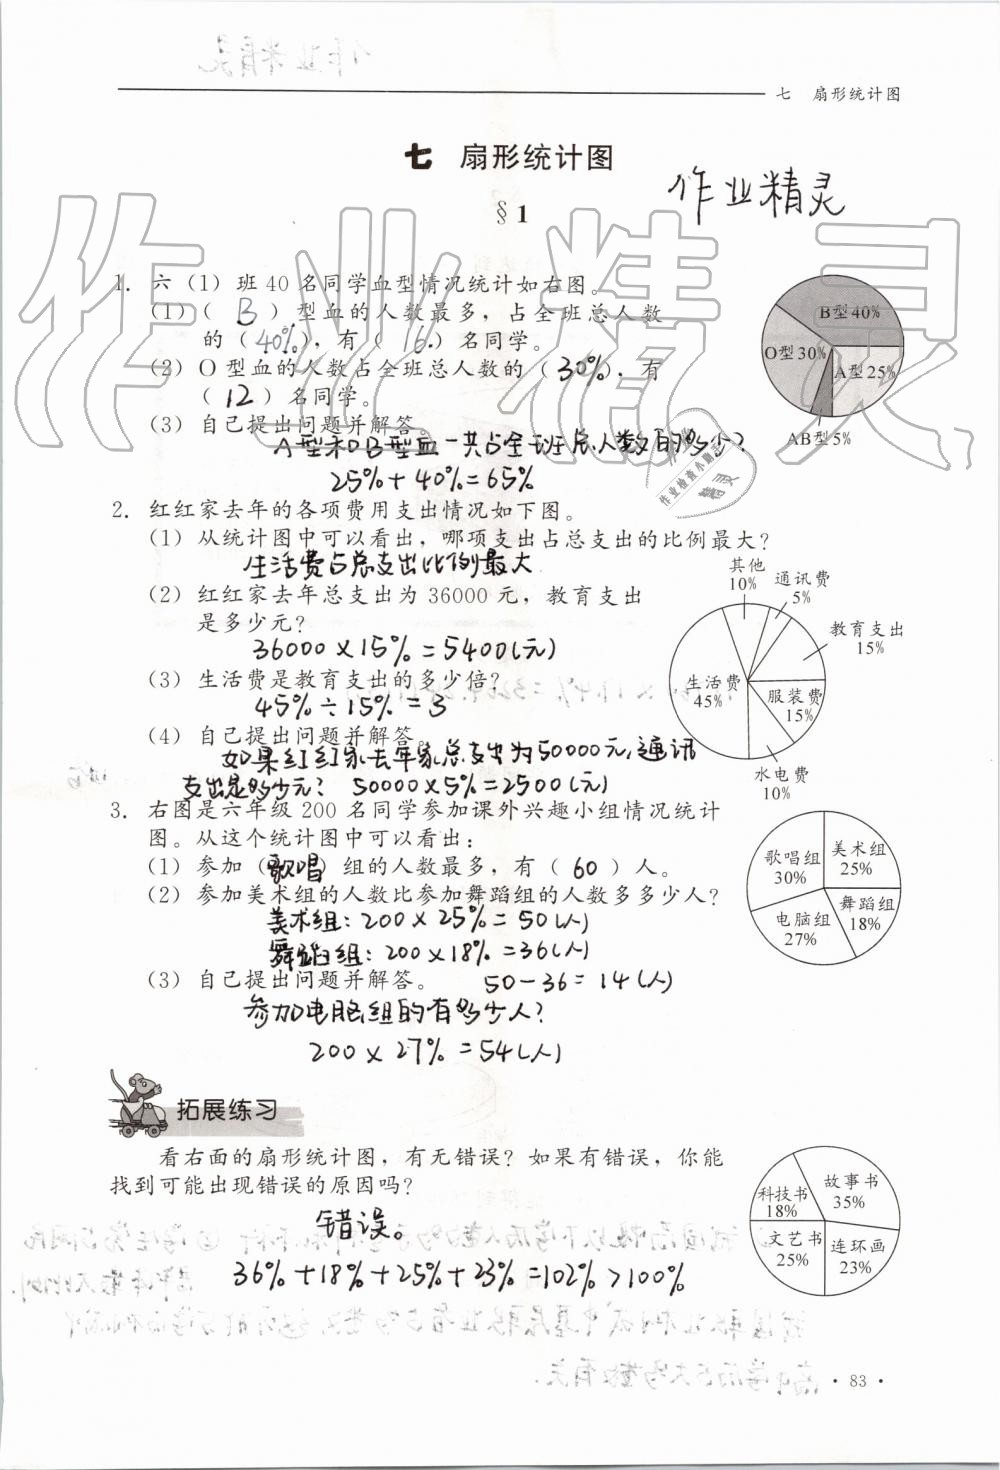 作业精灵
七 扇形统计图
七 扇形统计图
作业精灵
§1
作业精灵
1. 六(1)班40名同学血型情况统计如右图。
(1)( B )型血的人数最多，占全班总人数
的(40%)，有( 16 )名同学。
(2)O型血的人数占全班总人数的(30%)，有
( 12 )名同学。
(3)自己提出问题并解答。
A型和B型血一共占全班总人数的多少?
25%+40%=65%
B型40%
O型30%
A型25%
AB型5%
作业检查小帮手
精灵
2. 红红家去年的各项费用支出情况如下图。
(1)从统计图中可以看出，哪项支出占总支出的比例最大?
生活费占总支出比例最大
(2)红红家去年总支出为36000元，教育支出
是多少元?
36000×15%=5400(元)
(3)生活费是教育支出的多少倍?
45%÷15%=3
(4)自己提出问题并解答。
如果红红家去年家总支出为50000元,通讯
支出是多少元? 50000×5%=2500(元)
其他
10%
通讯费
5%
教育支出
15%
生活费
45%
服装费
15%
水电费
10%
3. 右图是六年级200名同学参加课外兴趣小组情况统计
图。从这个统计图中可以看出：
(1)参加(歌唱)组的人数最多，有( 60 )人。
(2)参加美术组的人数比参加舞蹈组的人数多多少人?
美术组:200×25%=50(人)
舞蹈组:200×18%=36(人)
(3)自己提出问题并解答。 50-36=14(人)
参加电脑组的有多少人?
200×27%=54(人)
歌唱组
30%
美术组
25%
舞蹈组
18%
电脑组
27%
拓展练习
看右面的扇形统计图，有无错误? 如果有错误，你能
找到可能出现错误的原因吗?
错误。
36%+18%+25%+23%=102%>100%
科技书
18%
故事书
35%
文艺书
25%
连环画
23%
·83·